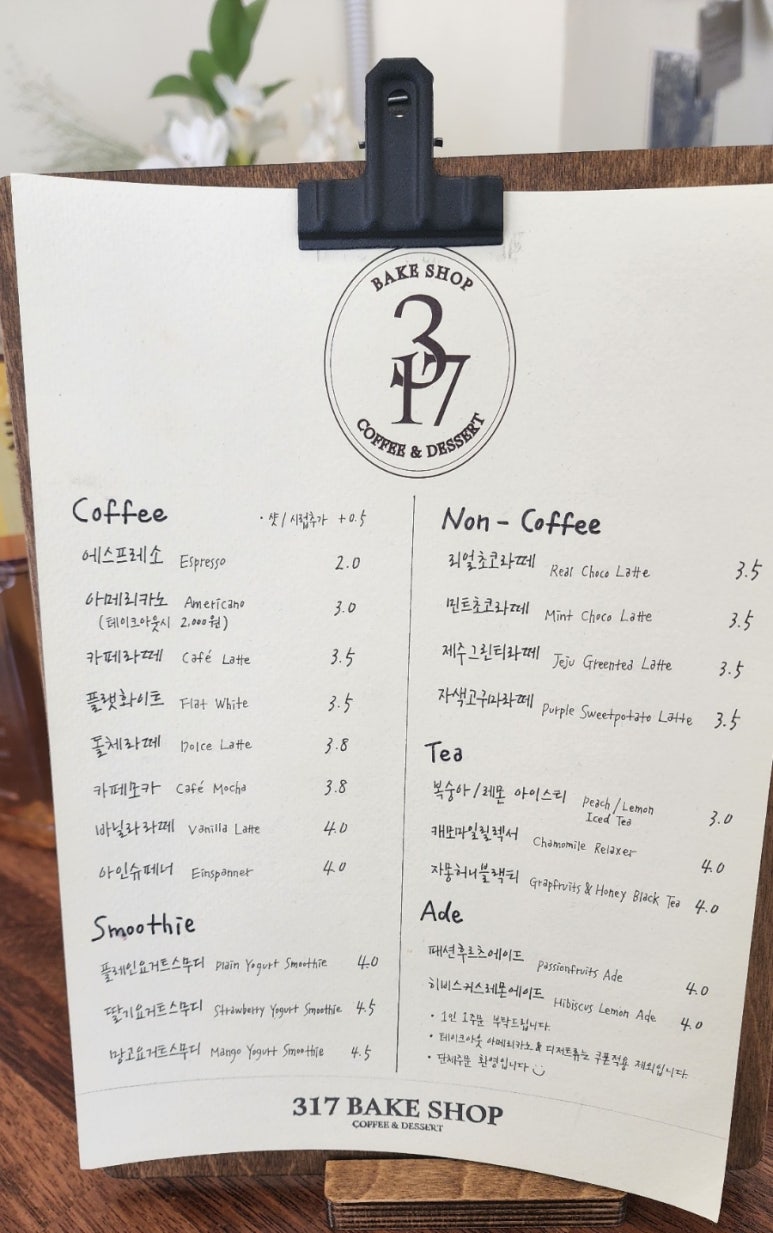 BAKE SHOP
317
COFFEE & DESSERT
Coffee ・샷/시럽추가 +0.5
에스프레소 Espresso 2.0
아메리카노 Americano 3.0
(테이크아웃시 2,000원)
카페라떼 Café Latte 3.5
플랫화이트 Flat White 3.5
돌체라떼 Dolce Latte 3.8
카페모카 Café Mocha 3.8
바닐라라떼 Vanilla Latte 4.0
아인슈페너 Einspanner 4.0
Smoothie
플레인요거트스무디 Plain Yogurt Smoothie 4.0
딸기요거트스무디 Strawberry Yogurt Smoothie 4.5
망고요거트스무디 Mango Yogurt Smoothie 4.5
Non - Coffee
리얼초코라떼 Real Choco Latte 3.5
민트초코라떼 Mint Choco Latte 3.5
제주그린티라떼 Jeju Greentea Latte 3.5
자색고구마라떼 Purple Sweetpotato Latte 3.5
Tea
복숭아/레몬 아이스티 Peach/Lemon
Iced Tea 3.0
캐모마일릴렉서 Chamomile Relaxer 4.0
자몽허니블랙티 Grapfruits & Honey Black Tea 4.0
Ade
패션후르츠에이드 Passionfruits Ade 4.0
히비스커스레몬에이드 Hibiscus Lemon Ade 4.0
• 1인 1주문 부탁드립니다.
• 테이크아웃 아메리카노 & 디저트류는 쿠폰적용 제외입니다.
• 단체주문 환영입니다
317 BAKE SHOP
COFFEE & DESSERT